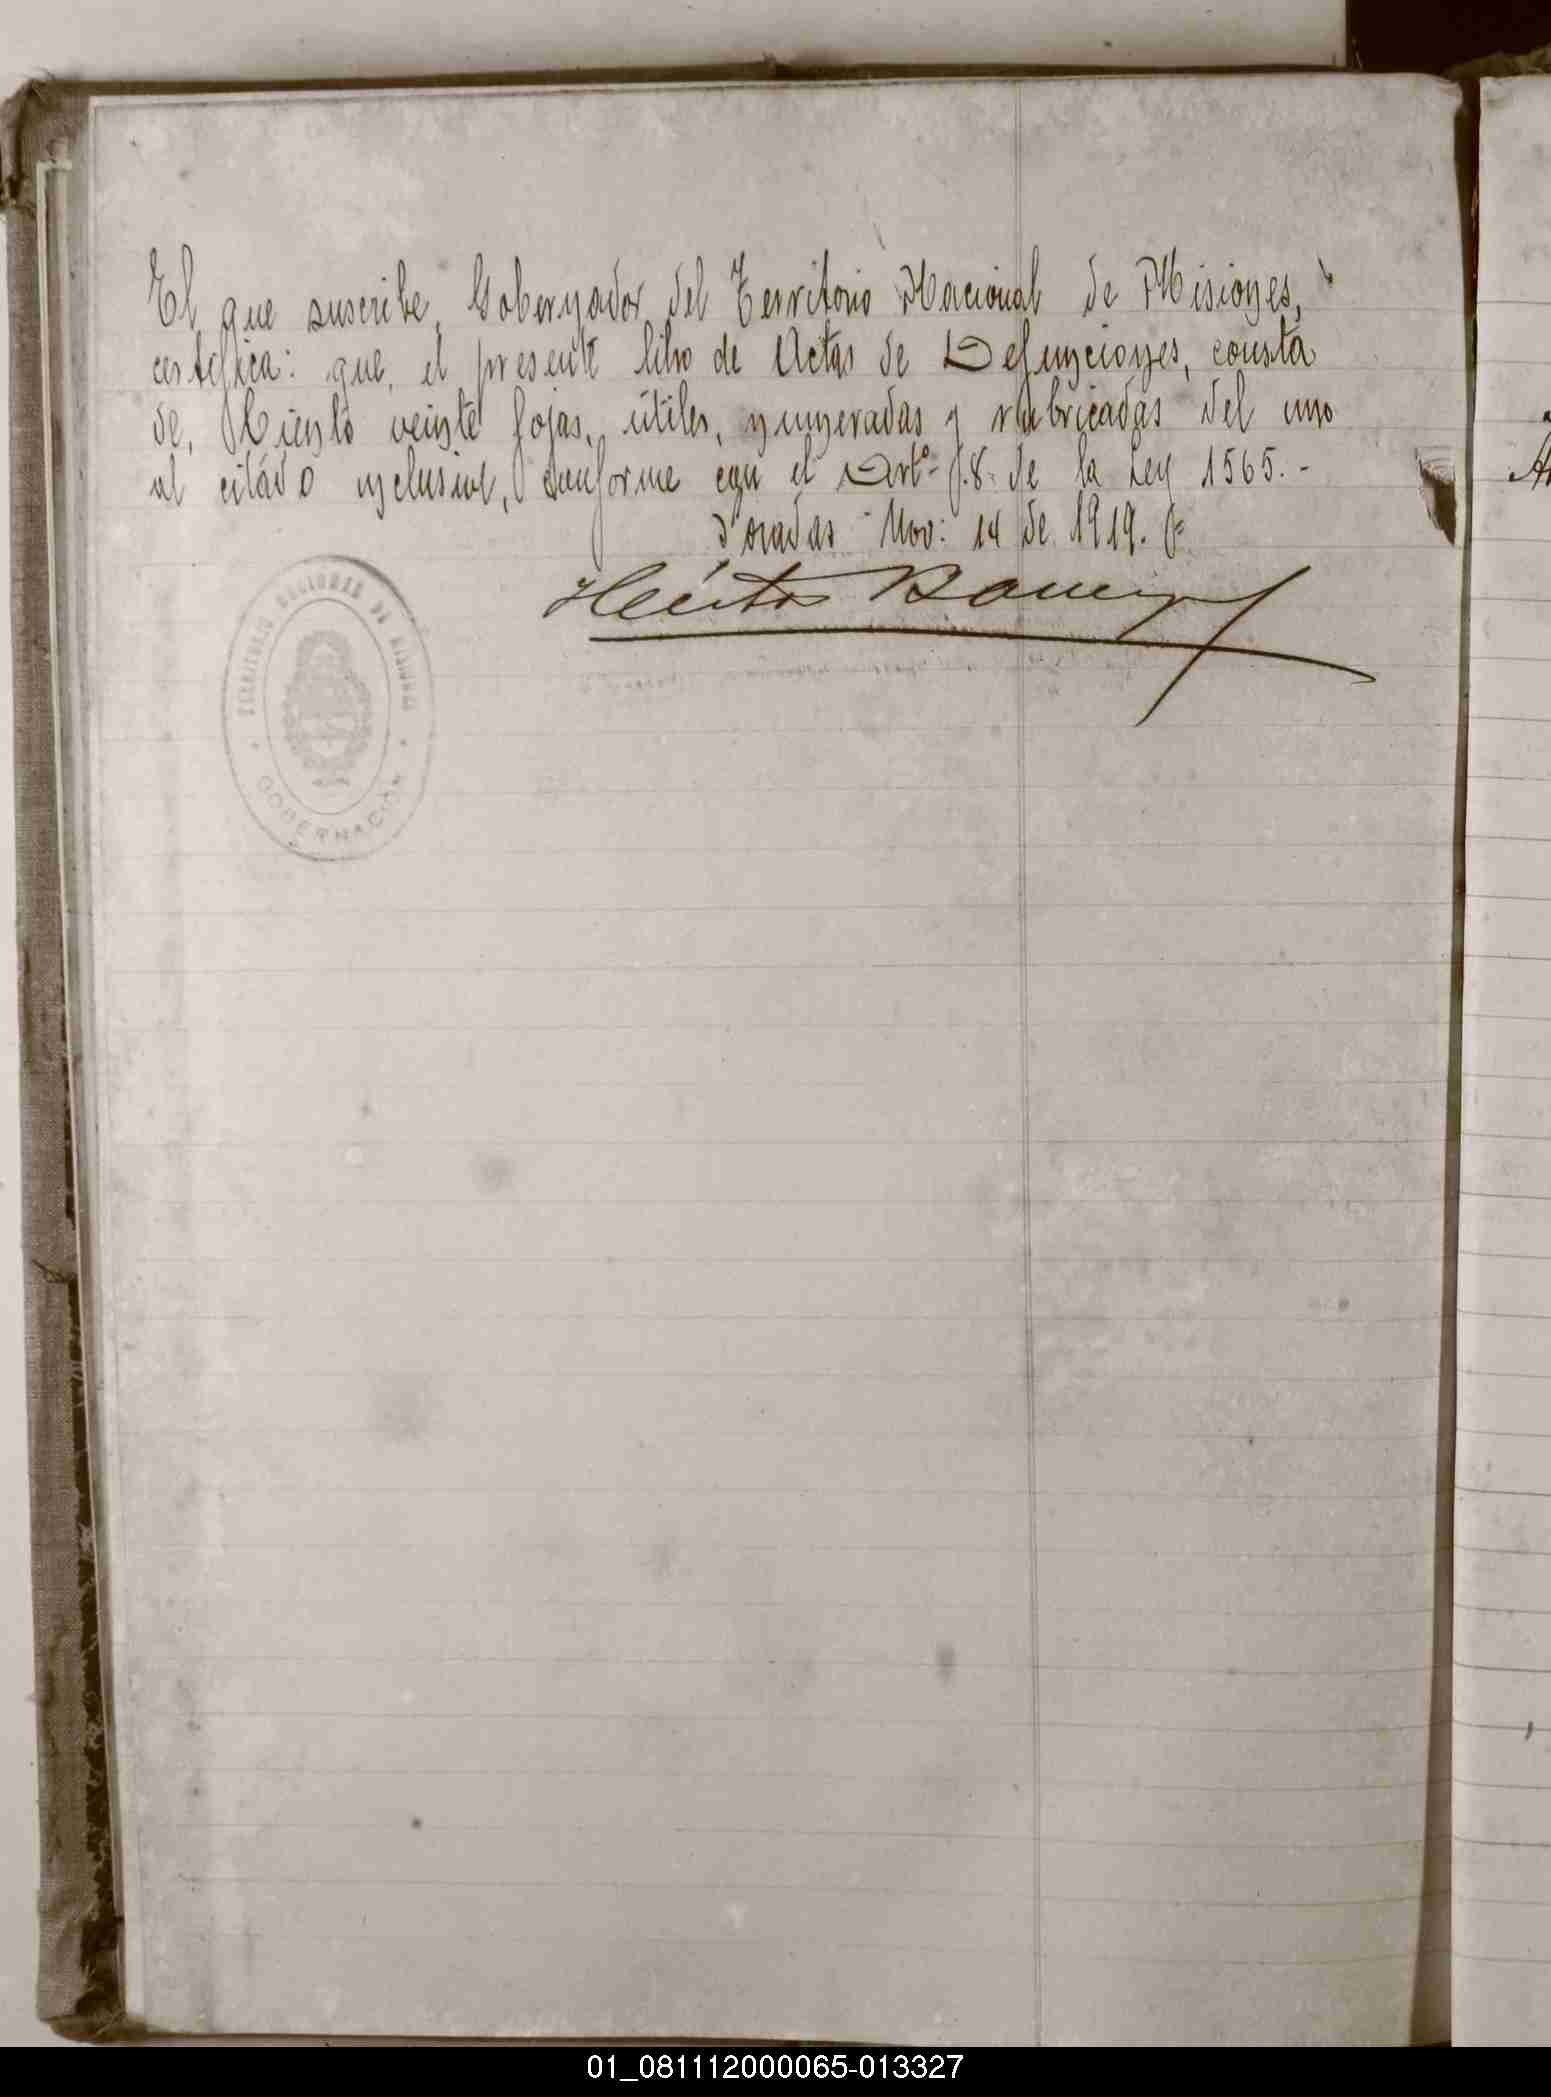 El que suscribe, Gobernador del Territorio Nacional de Misiones,
certifica: que, el presente libro de Actas de Defunciones, consta
de, Ciento veinte fojas, útiles, numeradas y rubricadas del uno
al citado inclusive, conforme con el Artº- 8. de la Ley 1565.-
Posadas Nov: 14 de 1919.
Héctor Barreyro
TERRITORIO NACIONAL DE MISIONES
GOBERNACIÓN
01_081112000065-013327